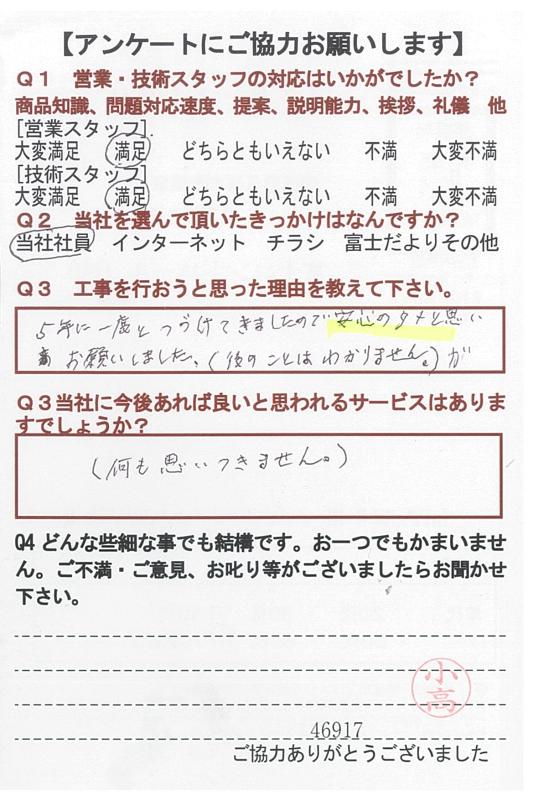 【アンケートにご協力お願いします】
Q1 営業・技術スタッフの対応はいかがでしたか？
商品知識、問題対応速度、提案、説明能力、挨拶、礼儀 他
[営業スタッフ].
大変満足 満足 どちらともいえない 不満 大変不満
[技術スタッフ]
大変満足 満足 どちらともいえない 不満 大変不満
Q2 当社を選んで頂いたきっかけはなんですか？
当社社員 インターネット チラシ 富士だよりその他
Q3 工事を行おうと思った理由を教えて下さい。
5年に一度とつづけてきましたので安心のタメと思い
お願いしました。(後のことはわかりません。)が
Q3当社に今後あれば良いと思われるサービスはありま
すでしょうか？
(何も思いつきません。)
Q4 どんな些細な事でも結構です。お一つでもかまいませ
ん。ご不満・ご意見、お叱り等がございましたらお聞かせ
下さい。
小高
46917
ご協力ありがとうございました